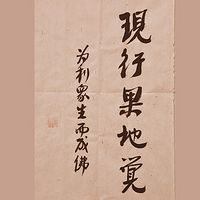 現行果地覺
为利眾生而成佛